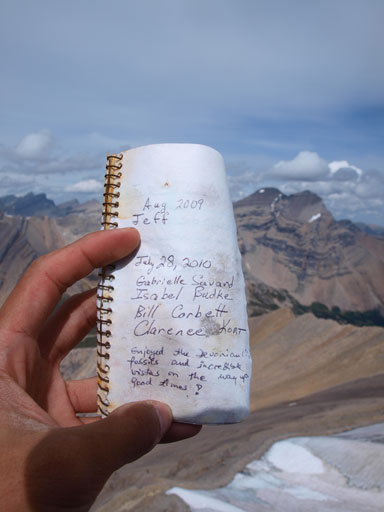 Aug 2009
Jeff
July 28, 2010
Gabrielle Savard
Isabel Budke
Bill Corbett
Clarence
Enjoyed the Devonian
fossils and incredible
vistas on the way up
Good times!